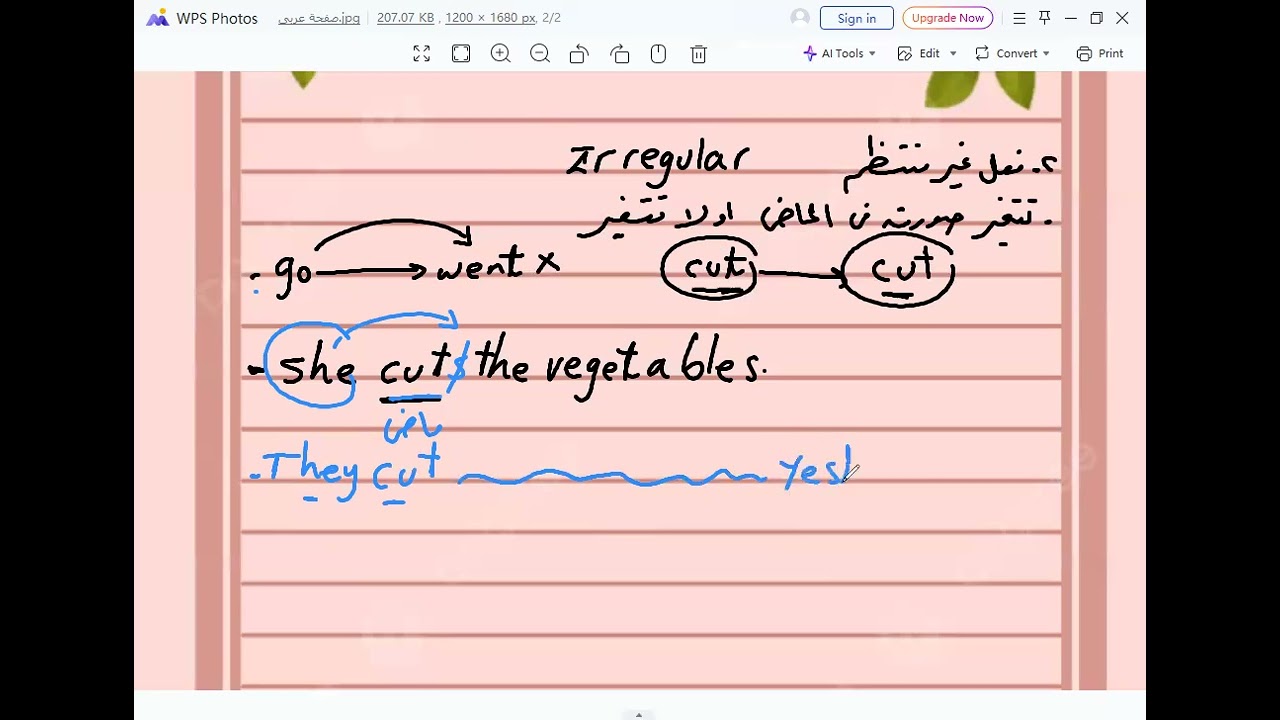 WPS Photos صفحة عربي.jpg 207.07 KB , 1200 × 1680 px, 2/2 Sign in Upgrade Now
AI Tools Edit Convert Print
Irregular ٢- فعل غير منتظم
. تتغير صورته في الماضي او لا تتغير
: go → went x cut → cut
- She cut s the vegetables.
ماضي
. They cut Yesl